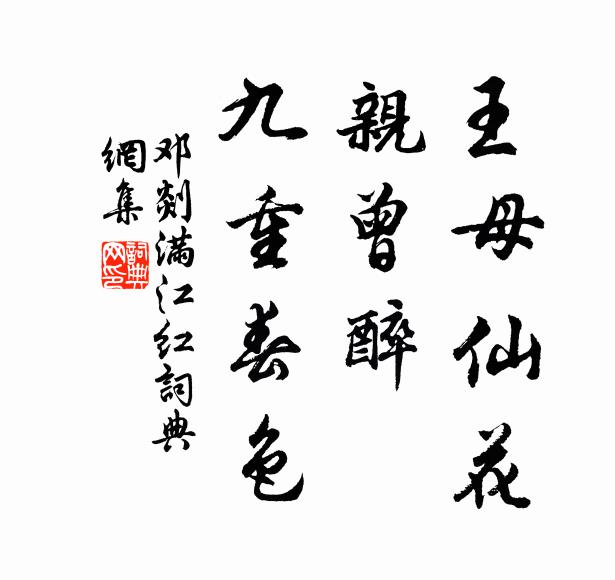 王母仙花
親曾醉
九重春色
邓剡满江红詞典
網集
詞典网印